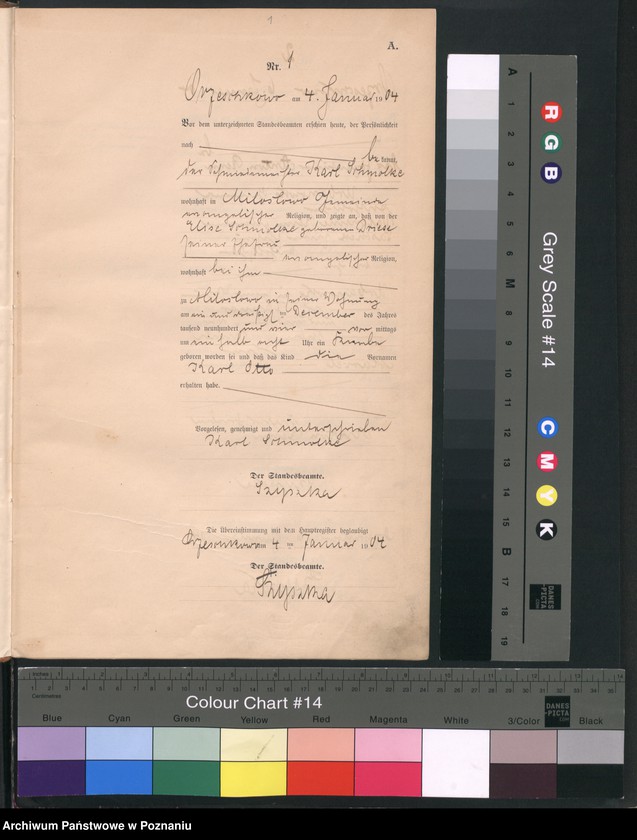 1
A.
Nr. 1
Orzeschkowo am 4. Januar 1904
Vor dem unterzeichneten Standesbeamten erschien heute, der Persönlichkeit
nach
be kannt,
der Schmiedemeister Karl Schmolke
wohnhaft in Miloslowo Gemeinde
evangelischer Religion, und zeigte an, daß von der
Elise Schmolke geborenen Driese
seiner Ehefrau
evangelischer Religion,
wohnhaft bei ihm
zu Miloslowo in seiner Wohnung
am ein und dreißigsten December des Jahres
tausend neunhundert und vor mittags
um ein halb acht Uhr ein Knabe
geboren worden sei und daß das Kind die Vornamen
Karl Otto
erhalten habe.
Vorgelesen, genehmigt und unterschrieben
Karl Schmolke
Der Standesbeamte.
Szyszka
Die Übereinstimmung mit dem Hauptregister beglaubigt
Orzeschkowo am 4 ten Januar 1904
Der Standesbeamte.
Szyszka
A 1 2 3 4 5 6 M 8 9 10 11 12 13 14 15 B 17 18 19
R G B
Grey Scale #14
C M Y K
DANES
-PICTA
.COM
Inches 1 2 3 4 5 6 7 8 9 10 11 12 13 14
1 2 3 4 5 6 7 8 9 10 11 12 13 14 15 16 17 18 19 20 21 22 23 24 25 26 27 28 29 30 31 32 33 34 35
Centimetres
Colour Chart #14
DANES
-PICTA
.COM
Blue Cyan Green Yellow Red Magenta White 3/Color Black
Archiwum Państwowe w Poznaniu